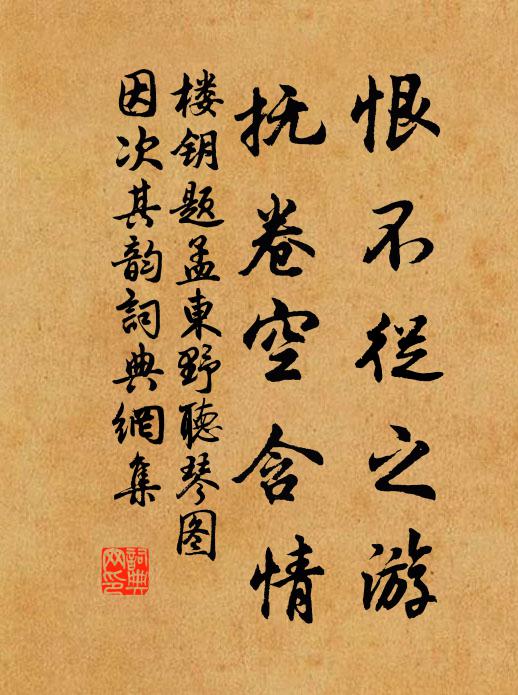 恨不從之游
抚卷空含情
楼钥题孟東野聽琴图
因次其韵詞典網集
詞典網印